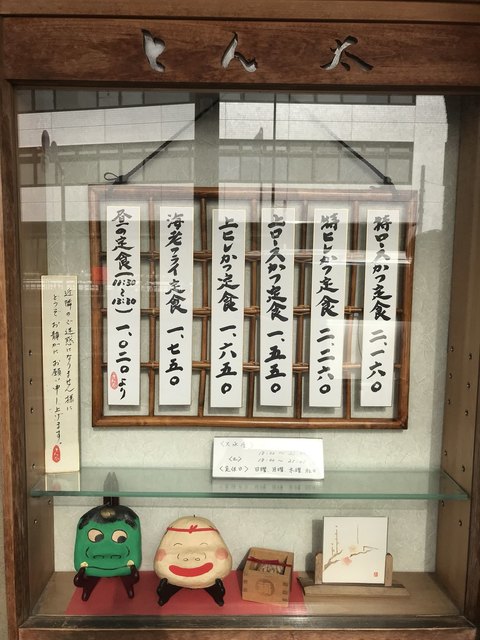 とん太
特ロースかつ定食 二、一六〇
特ヒレかつ定食 二、二六〇
上ロースかつ定食 一、五五〇
上ヒレかつ定食 一、六五〇
海老フライ定食 一、七五〇
昼の定食(11:30~13:30) 一、〇二〇より
近隣のご迷惑になりません様に
どうぞ、お静かにお願い申し上げます。
〈定休日〉 日曜 月曜 木曜 祝日